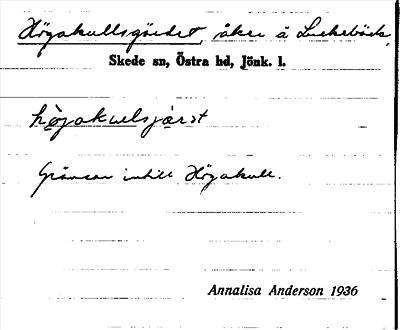 Högakullsgärdet, åker å Luckebäck,
Skede sn, Östra hd, Jönk. l.
högakuelsjärst
Gränsar intill Högakull.
Annalisa Anderson 1936